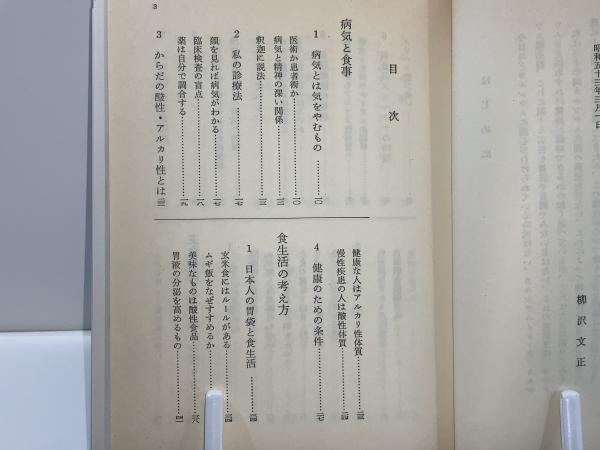 昭和五十三年三月一日
柳沢文正
目次
病気と食事
1 病気とは気をやむもの……一〇
医術か患者術か……一〇
病気と精神の深い関係……一三
釈迦に説法……一三
2 私の診療法……一七
顔を見れば病気がわかる……一七
臨床検査の盲点……一八
薬は自分で調合する……一九
3 からだの酸性・アルカリ性とは…二三
健康な人はアルカリ性体質……二三
慢性疾患の人は酸性体質……二四
4 健康のための条件……二七
食生活の考え方
1 日本人の胃袋と食生活……三四
玄米食にはルールがある……三四
ムギ飯をなぜすすめるか……三六
美味なものは酸性食品……三八
胃液の分泌を高めるもの……四一
3